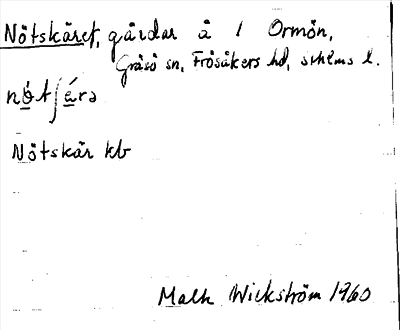 Nötskäret, gårdar å 1 Ormön,
Gräsö sn, Frösåkers hd, sthlms l.
nötʃärə
Nötskär kb
Malh Wickström 1960